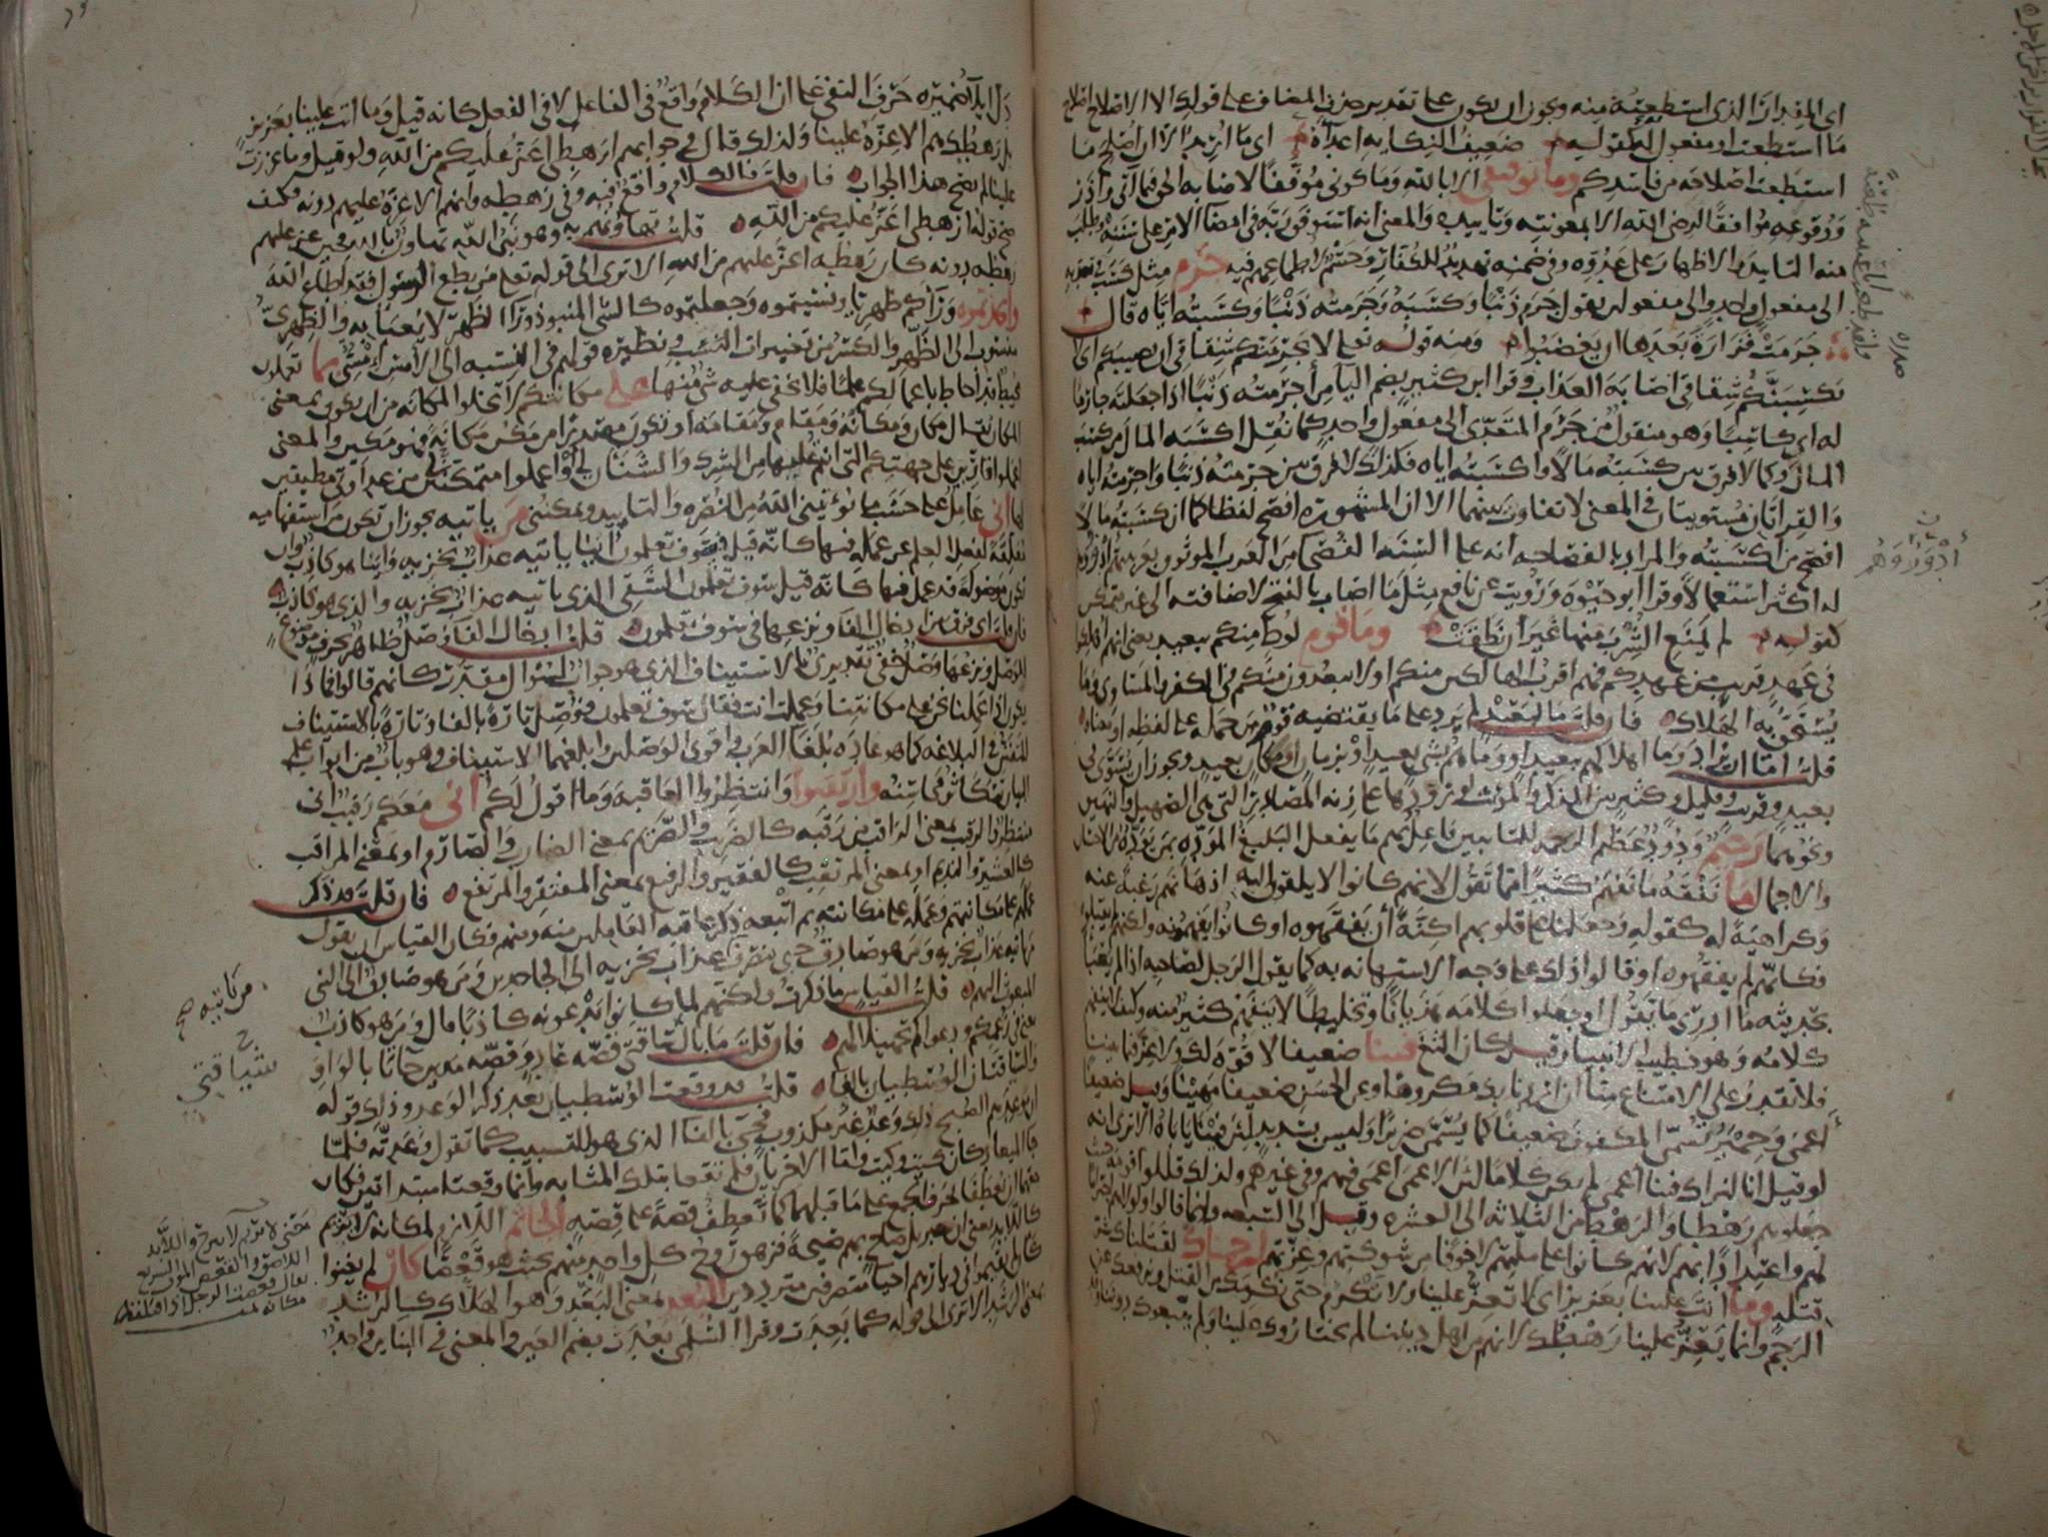 اي المقدار الذي استطعته منه ويجوز ان يكون على تقدير حذف المضاف على قولك الا الاصلاح اصلاح
ما استطعت او مفعول له كقوله ضعيف النكاية اعداءه اي ما اريد الا ان اصلح ما
استطعت اصلاحه من فاسدكم وما توفيقي الا بالله وما كوني موفقا لاصابه الحق فيما آتي واذر
ووقوعه موافقا لرضى الله الا بمعونته وتاييده والمعنى انه استوفق ربه في امضا الامر على سننه وطلب
منه التاييد والاظهار على عدوه وفي ضمنه تهديد للكفار وحسم لاطماعهم فيه جرم مثل كسب في تعديه
الى مفعول واحد والى مفعولين يقول جرم ذنبا وكسبه وجرمته ذنبا وكسبته اياه قال
جرمت فزارة بعدها ان يغضبوا ومنه قوله تعلى لا يجرمنكم شقاقي ان يصيبكم اي لا
يكسبنكم شقاقي اصابه العذاب وقرا ابن كثير بضم اليا من اجرمته ذنبا اذا جعلته جارما
له اي كاسبا وهو منقول من جرم المتعدي الى مفعول واحد كما نقل اكسبه المال من كسب
المال وكما لا فرق بين كسبته مالا واكسبته اياه فكذلك لا فرق بين جرمته ذنبا واجرمته اياه
والقراتان مستويتان في المعنى لا تفاوت بينهما الا ان المشهورة افصح لفظا كما ان كسبته مالا
افصح من اكسبته والمراد بالفصاحه انه على السنة الفصحا من العرب الموثوق بعربيتهم ادور وهم
له اكثر استعمالا وقرا ابو حيوه ورويت عن نافع مثل ما اصاب بالفتح لاضافته الى غير متمكن
كقوله لم يمنع الشرب منها غير ان نطقت وما قوم لوط منكم ببعيد يعني انهم اهلكوا
في عهد قريب من عهدكم فهم اقرب الهالكين منكم او لا يبعدون منكم في الكفر والمساوي وما
يستحق به الهلاك فان قلت ما لبعيد لم يرد على ما يقتضيه قوم من حمله على لفظه او معناه
قلت اما ان يراد وما اهلاكهم ببعيد او وما هم بشي بعيد او بزمان او مكان بعيد ويجوز ان يسوى في
بعيد وقريب وقليل وكثير بين المذكر والمؤنث لورودها على زنه المصادر التي هي الصهيل والنهيق
ونحوهما رحيم ودود عظيم الرحمه للتايبين فاعل بهم ما يفعل البليغ المودة بمن يوده من الاحسان
والاجمال ما نفقه ما نفهم كثيرا مما تقول لانهم كانوا لا يلقون اليه اذهانهم رغبة عنه
وكراهية له كقوله وجعلنا على قلوبهم اكنة ان يفقهوه او كانوا يفهمونه ولكنهم لم يقبلوه
فكانهم لم يفقهوه او قالوا ذلك على وجه الاستهانه به كما يقول الرجل لصاحبه اذا لم يعبا
بحديثه ما ادري ما تقول او جعلوا كلامه هذيانا وتخليطا لا يتفهم كثير منه وكيف لا يتفهم
كلامه وهو خطيب الانبيا وقيل كان الثغ فينا ضعيفا لا قوة لك ولا عز فيما بيننا
فلا تقدر على الامتناع منا ان اردنا بك مكروها وعن الحسن ضعيفا مهينا وقيل ضعيفا
اعمى وحمير تسمى المكفوف ضعيفا كما يسمى ضريرا وليس بسديد لان فينا ياباه الا ترى انه
لو قيل انا لنراك فينا اعمى لم يكن كلاما لان الاعمى اعمى فيهم وفي غيرهم ولذلك قللوا قومه حيث
جعلوهم رهطا والرهط من الثلاثه الى العشرة وقيل الى السبعه وانما قالوا ولولاهم احتراما
لهم واعتدادا بهم لانهم كانوا على ملتهم لا خوفا من شوكتهم وعزتهم لرجمناك لقتلناك شر
قتله وما انت علينا بعزيز اي لا تعز علينا ولا تكرم حتى نكرمك من القتل ونرفعك عن
الرجم وانما يعز علينا رهطك لانهم من اهل ديننا لم يختاروك علينا ولم يتبعوك دوننا
دل ايلا ضميره حرف النفي على ان الكلام واقع في الفاعل لا في الفعل كانه قيل وما انت علينا بعزيز
بل رهطك هم الاعزة علينا ولذلك قال في جوابهم ارهطي اعز عليكم من الله ولو قيل وما عززت
علينا لم يصح هذا الجواب فان قلت فالكلام واقع فيه وفي رهطه وانهم الاعزة عليهم دونه فكيف
صح قوله ارهطي اعز عليكم من الله قلت تهاونهم به وهو نبي الله تهاون بالله فحين عز عليهم
رهطه دونه كان رهطه اعز عليهم من الله الا ترى الى قوله تعلى من يطع الرسول فقد اطاع الله
واتخذتموه وراكم ظهريا ونسيتموه وجعلتموه كالشي المنبوذ ورا الظهر لا يعبا به والظهري
منسوب الى الظهر والكسر من تغييرات النسب ونظيره قولهم في النسبه الى الامس امسي بما تعملون
محيط قد احاط باعمالكم علما فلا يخفى عليه شي منها على مكانتكم لا تخلوا المكانه من ان يكون بمعنى
المكان يقال مكان ومكانة ومقام ومقامة او تكون مصدرا من مكن مكانة فهو مكين والمعنى
اعملوا قارين على جهتكم التي انتم عليها من الشرك والشنان لي او اعملوا متمكنين من عداوتي مطيقين
لها اني عامل على حسب ما يؤتيني الله من النصرة والتاييد ويمكنني من ياتيه يجوز ان تكون من استفهاميه
معلقة لفعل العلم عن عمله فيها كانه قيل فسوف تعلمون اينا ياتيه عذاب يخزيه واينا هو كاذب وان
تكون موصولة قد عمل فيها كانه قيل سوف تعلمون الشقي الذي ياتيه عذاب يخزيه والذي هو كاذب
فان قلت اي فرق بين ادخال الفا ونزعها في سوف تعلمون قلت ادخال الفا وصل ظاهر بحرف موضوع
للوصل ونزعها وصل خفي تقديري بالاستيناف الذي هو جواب لسؤال مقدر كانهم قالوا فماذا
يكون اذا عملنا نحن على مكانتنا وعملت انت فقال سوف تعلمون فوصل تارة بالفا وتارة بالاستيناف
للتفنن في البلاغه كما هو عادة بلغا العرب واقوى الوصلين وابلغهما الاستيناف وهو باب من ابواب علم
البيان تتكاثر محاسنه وارتقبوا وانتظروا العاقبة وما اقول لكم اني معكم رقيب اني
منتظر والرقيب بمعنى الراقب من رقبه كالضريب والصريم بمعنى الضارب والصارم او بمعنى المراقب
كالعشير والنديم او بمعنى المرتقب كالفقير والرفيع بمعنى المفتقر والمرتفع فان قلت قد ذكر
عملهم على مكانتهم وعمله على مكانته ثم اتبعه ذكر عاقبه العاملين منه ومنهم فكان القياس ان يقول
من ياتيه عذاب يخزيه ومن هو صادق حتى ينصرف عذاب يخزيه الى الجاحدين ومن هو صادق الى النبي
المبعوث اليهم قلت القياس ما ذكرت ولكنهم لما كانوا يدعونه كاذبا قال ومن هو كاذب
يعني في زعمكم ودعواكم تجهيلا لهم فان قلت ما بال ساقتي قصة عاد وقصه مدين جاتا بالواو
والساقتان الوسطيان بالفا قلت قد وقعت الوسطيان بعد ذكر الوعد وذلك قوله
ان موعدهم الصبح ذلك وعد غير مكذوب فجي بالفا الذي هو للتسبيب كما تقول وعدته فلما
جا الميعاد كان كيت وكيت واما الاخريان فلم تقعا بتلك المثابه وانما وقعتا مبتداتين فكان
حقهما ان تعطفا بحرف الجمع على ما قبلهما كما تعطف قصة على قصة الجاثم اللازم لمكانه لا يريم
كاللابد يعني ان جبريل صاح بهم صيحة فزهق روح كل واحد منهم بحيث هو قعصا كان لم يغنوا
كان لم يقيموا في ديارهم احيا متصرفين مترددين البعد بمعنى البعد وهو الهلاك كالرشد
بمعنى الرشد الا ترى الى قوله كما بعدت وقرا السلمي بعدت بضم العين والمعنى في البناين واحد
من ياتيه صح
ساقتي